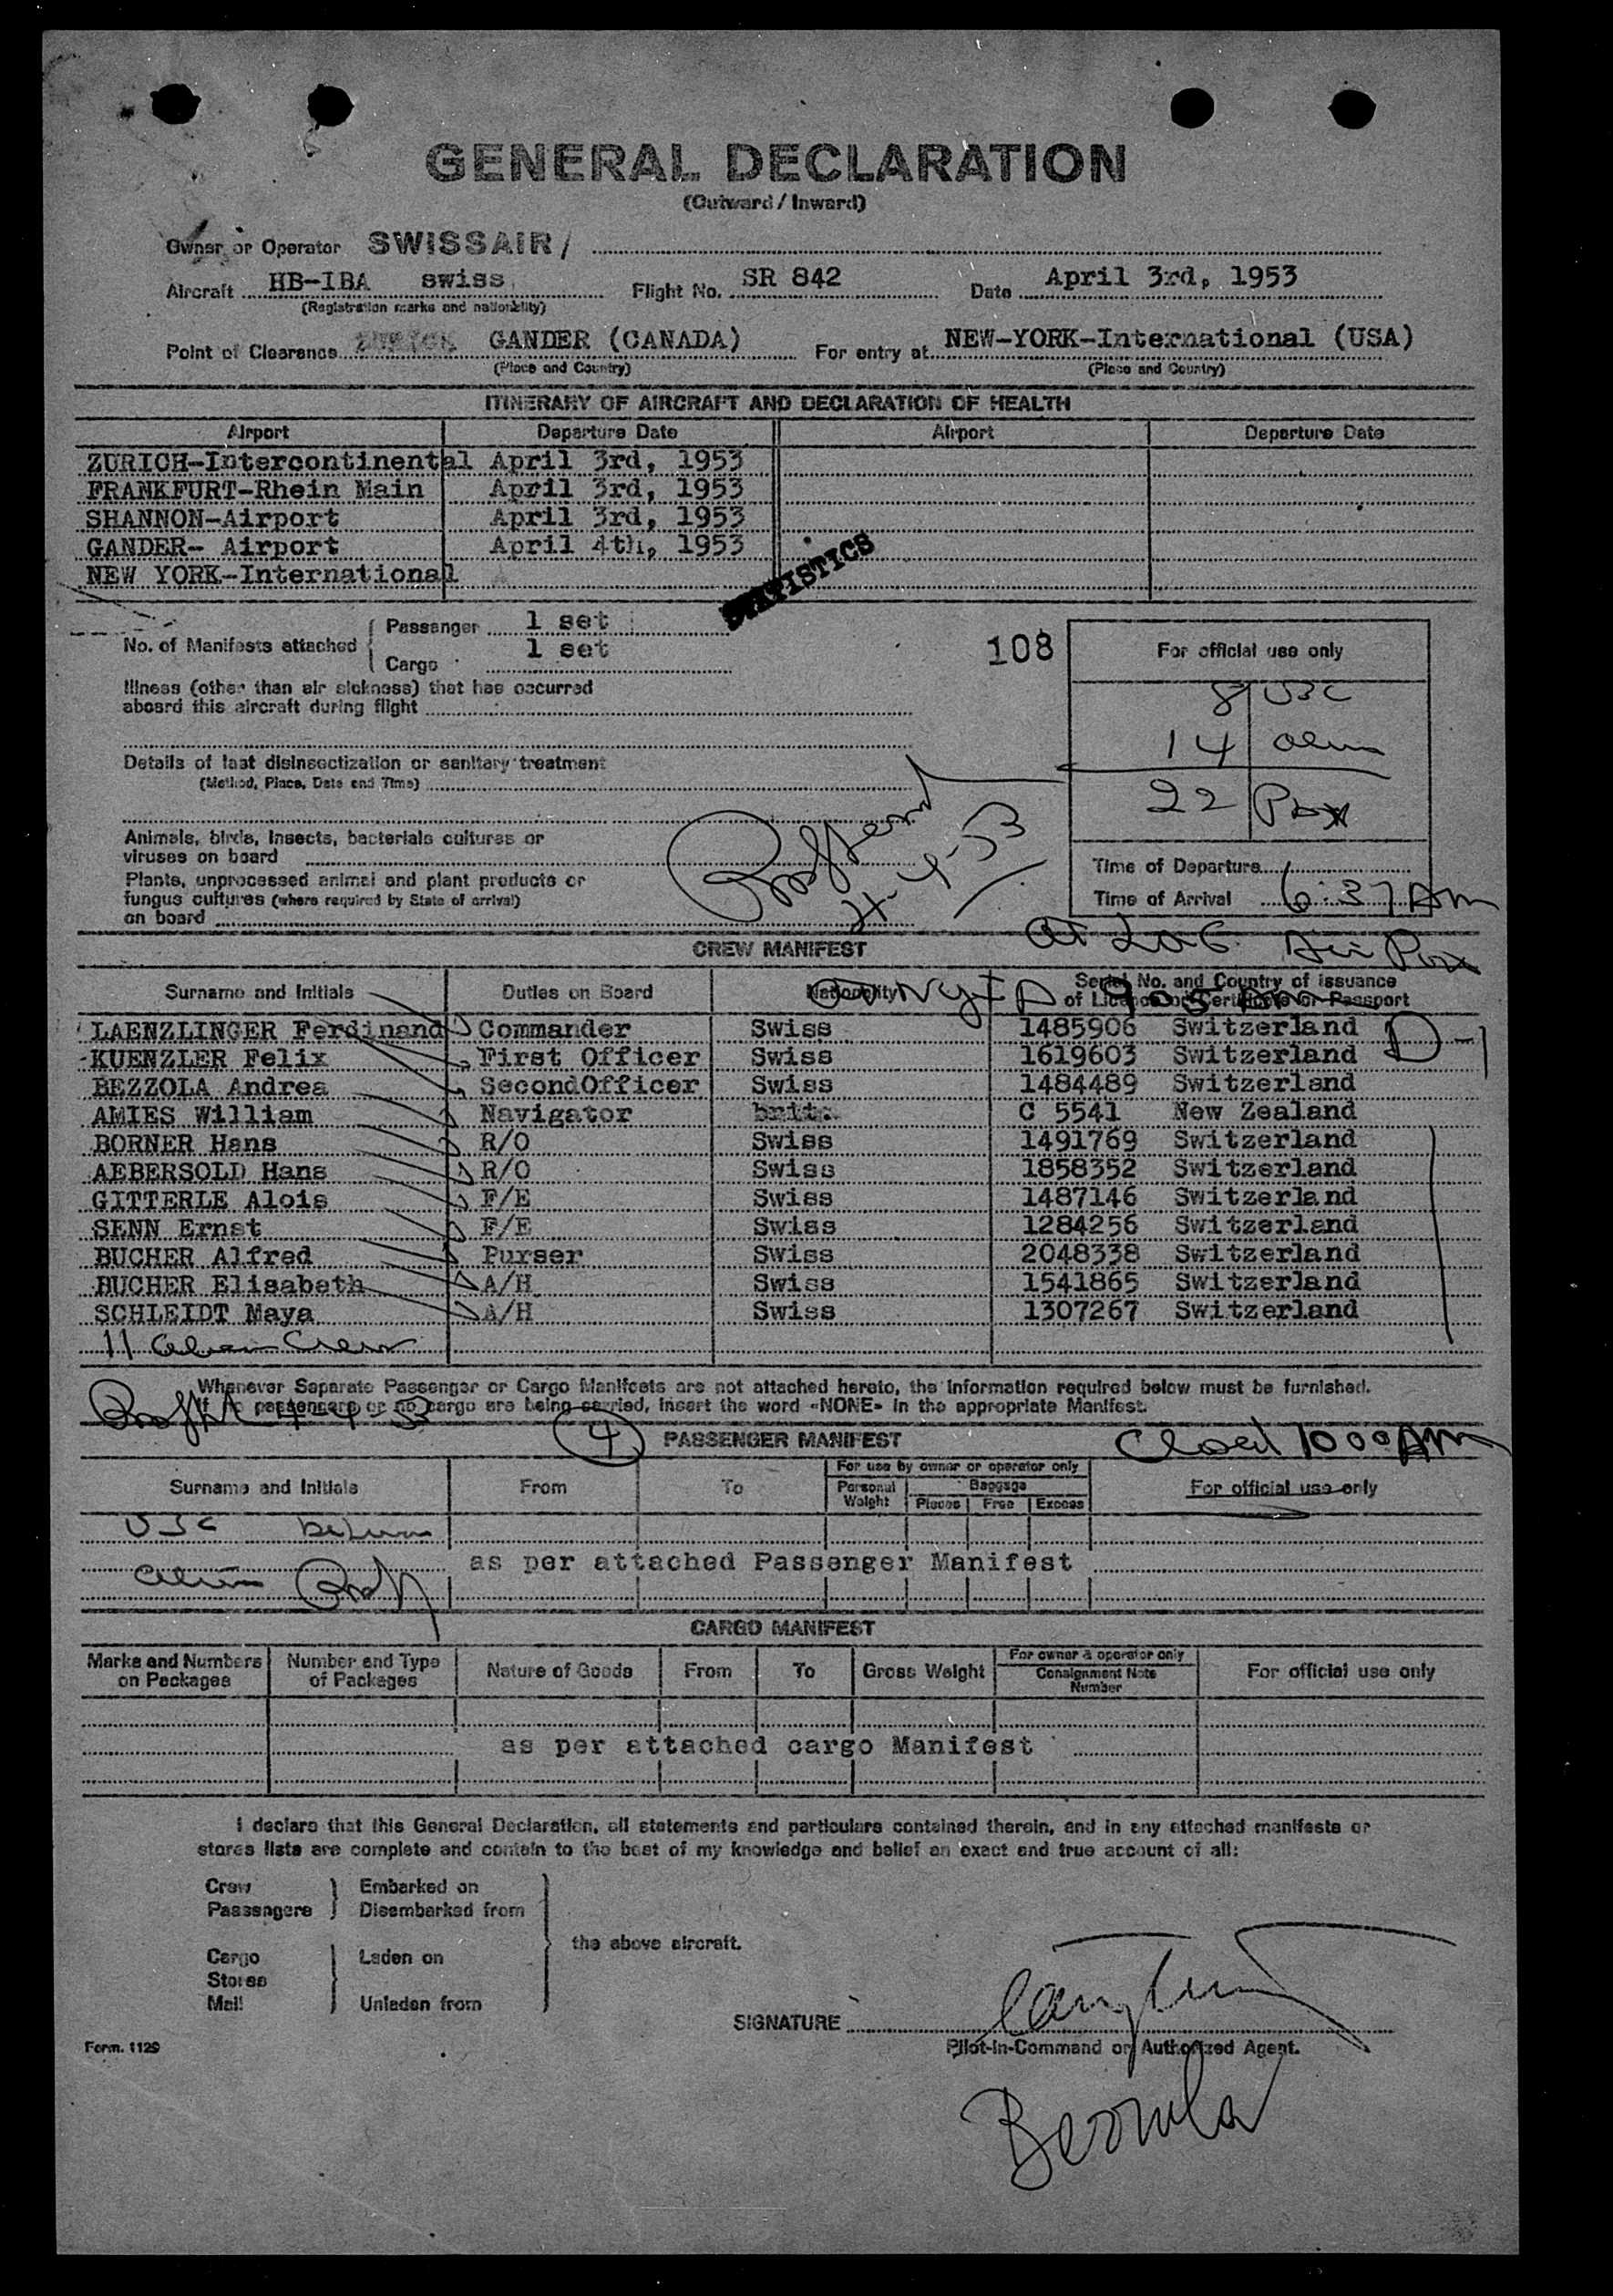 GENERAL DECLARATION
(Outward / Inward)
Owner or Operator SWISSAIR /
Aircraft HB-IBA swiss Flight No. SR 842 Date April 3rd, 1953
(Registration marks and nationality)
Point of Clearance GANDER (CANADA) For entry at NEW-YORK-International (USA)
(Place and Country) (Place and Country)
ITINERARY OF AIRCRAFT AND DECLARATION OF HEALTH
Airport Departure Date Airport Departure Date
ZURICH-Intercontinental April 3rd, 1953
FRANKFURT-Rhein Main April 3rd, 1953
SHANNON-Airport April 3rd, 1953
GANDER- Airport April 4th, 1953
NEW YORK-International
STATISTICS
No. of Manifests attached
Passenger 1 set
Cargo 1 set
108
For official use only
8 USC
14 alien
22 Pax
Illness (other than air sickness) that has occurred
aboard this aircraft during flight
Details of last disinsectization or sanitary treatment
(Method, Place, Date and Time)
4-4-53
Animals, birds, insects, bacterials cultures or
viruses on board
Plants, unprocessed animal and plant products or
fungus cultures (where required by State of arrival)
on board
Time of Departure
Time of Arrival 6:37 AM
at LaG Air Port
CREW MANIFEST
at NYIA 905 AM
Surname and Initials Duties on Board Nationality Serial No. and Country of issuance
of Licence or Certificate or Passport
LAENZLINGER Ferdinand Commander Swiss 1485906 Switzerland
D-1
KUENZLER Felix First Officer Swiss 1619603 Switzerland
BEZZOLA Andrea SecondOfficer Swiss 1484489 Switzerland
AMIES William Navigator C 5541 New Zealand
BORNER Hans R/O Swiss 1491769 Switzerland
AEBERSOLD Hans R/O Swiss 1858352 Switzerland
GITTERLE Alois F/E Swiss 1487146 Switzerland
SENN Ernst F/E Swiss 1284256 Switzerland
BUCHER Alfred Purser Swiss 2048338 Switzerland
BUCHER Elisabeth A/H Swiss 1541865 Switzerland
SCHLEIDT Maya A/H Swiss 1307267 Switzerland
11 alien Crew
Whenever Separate Passenger or Cargo Manifests are not attached hereto, the information required below must be furnished.
If no passengers or no cargo are being carried, insert the word «NONE» in the appropriate Manifest.
4-4-53
4 PASSENGER MANIFEST Closed 10 00 AM
Surname and Initials From To For use by owner or operator only For official use only
Personal Weight Baggage
Pieces Free Excess
USC
alien
as per attached Passenger Manifest
CARGO MANIFEST
Marks and Numbers on Packages Number and Type of Packages Nature of Goods From To Gross Weight For owner & operator only Consignment Note Number For official use only
as per attached cargo Manifest
I declare that this General Declaration, all statements and particulars contained therein, and in any attached manifests or
stores lists are complete and contain to the best of my knowledge and belief an exact and true account of all:
Crew Embarked on
Passengers Disembarked from
the above aircraft.
Cargo Laden on
Stores
Mail Unladen from
SIGNATURE
Pilot-in-Command or Authorized Agent.
Form. 1129
Bezzola